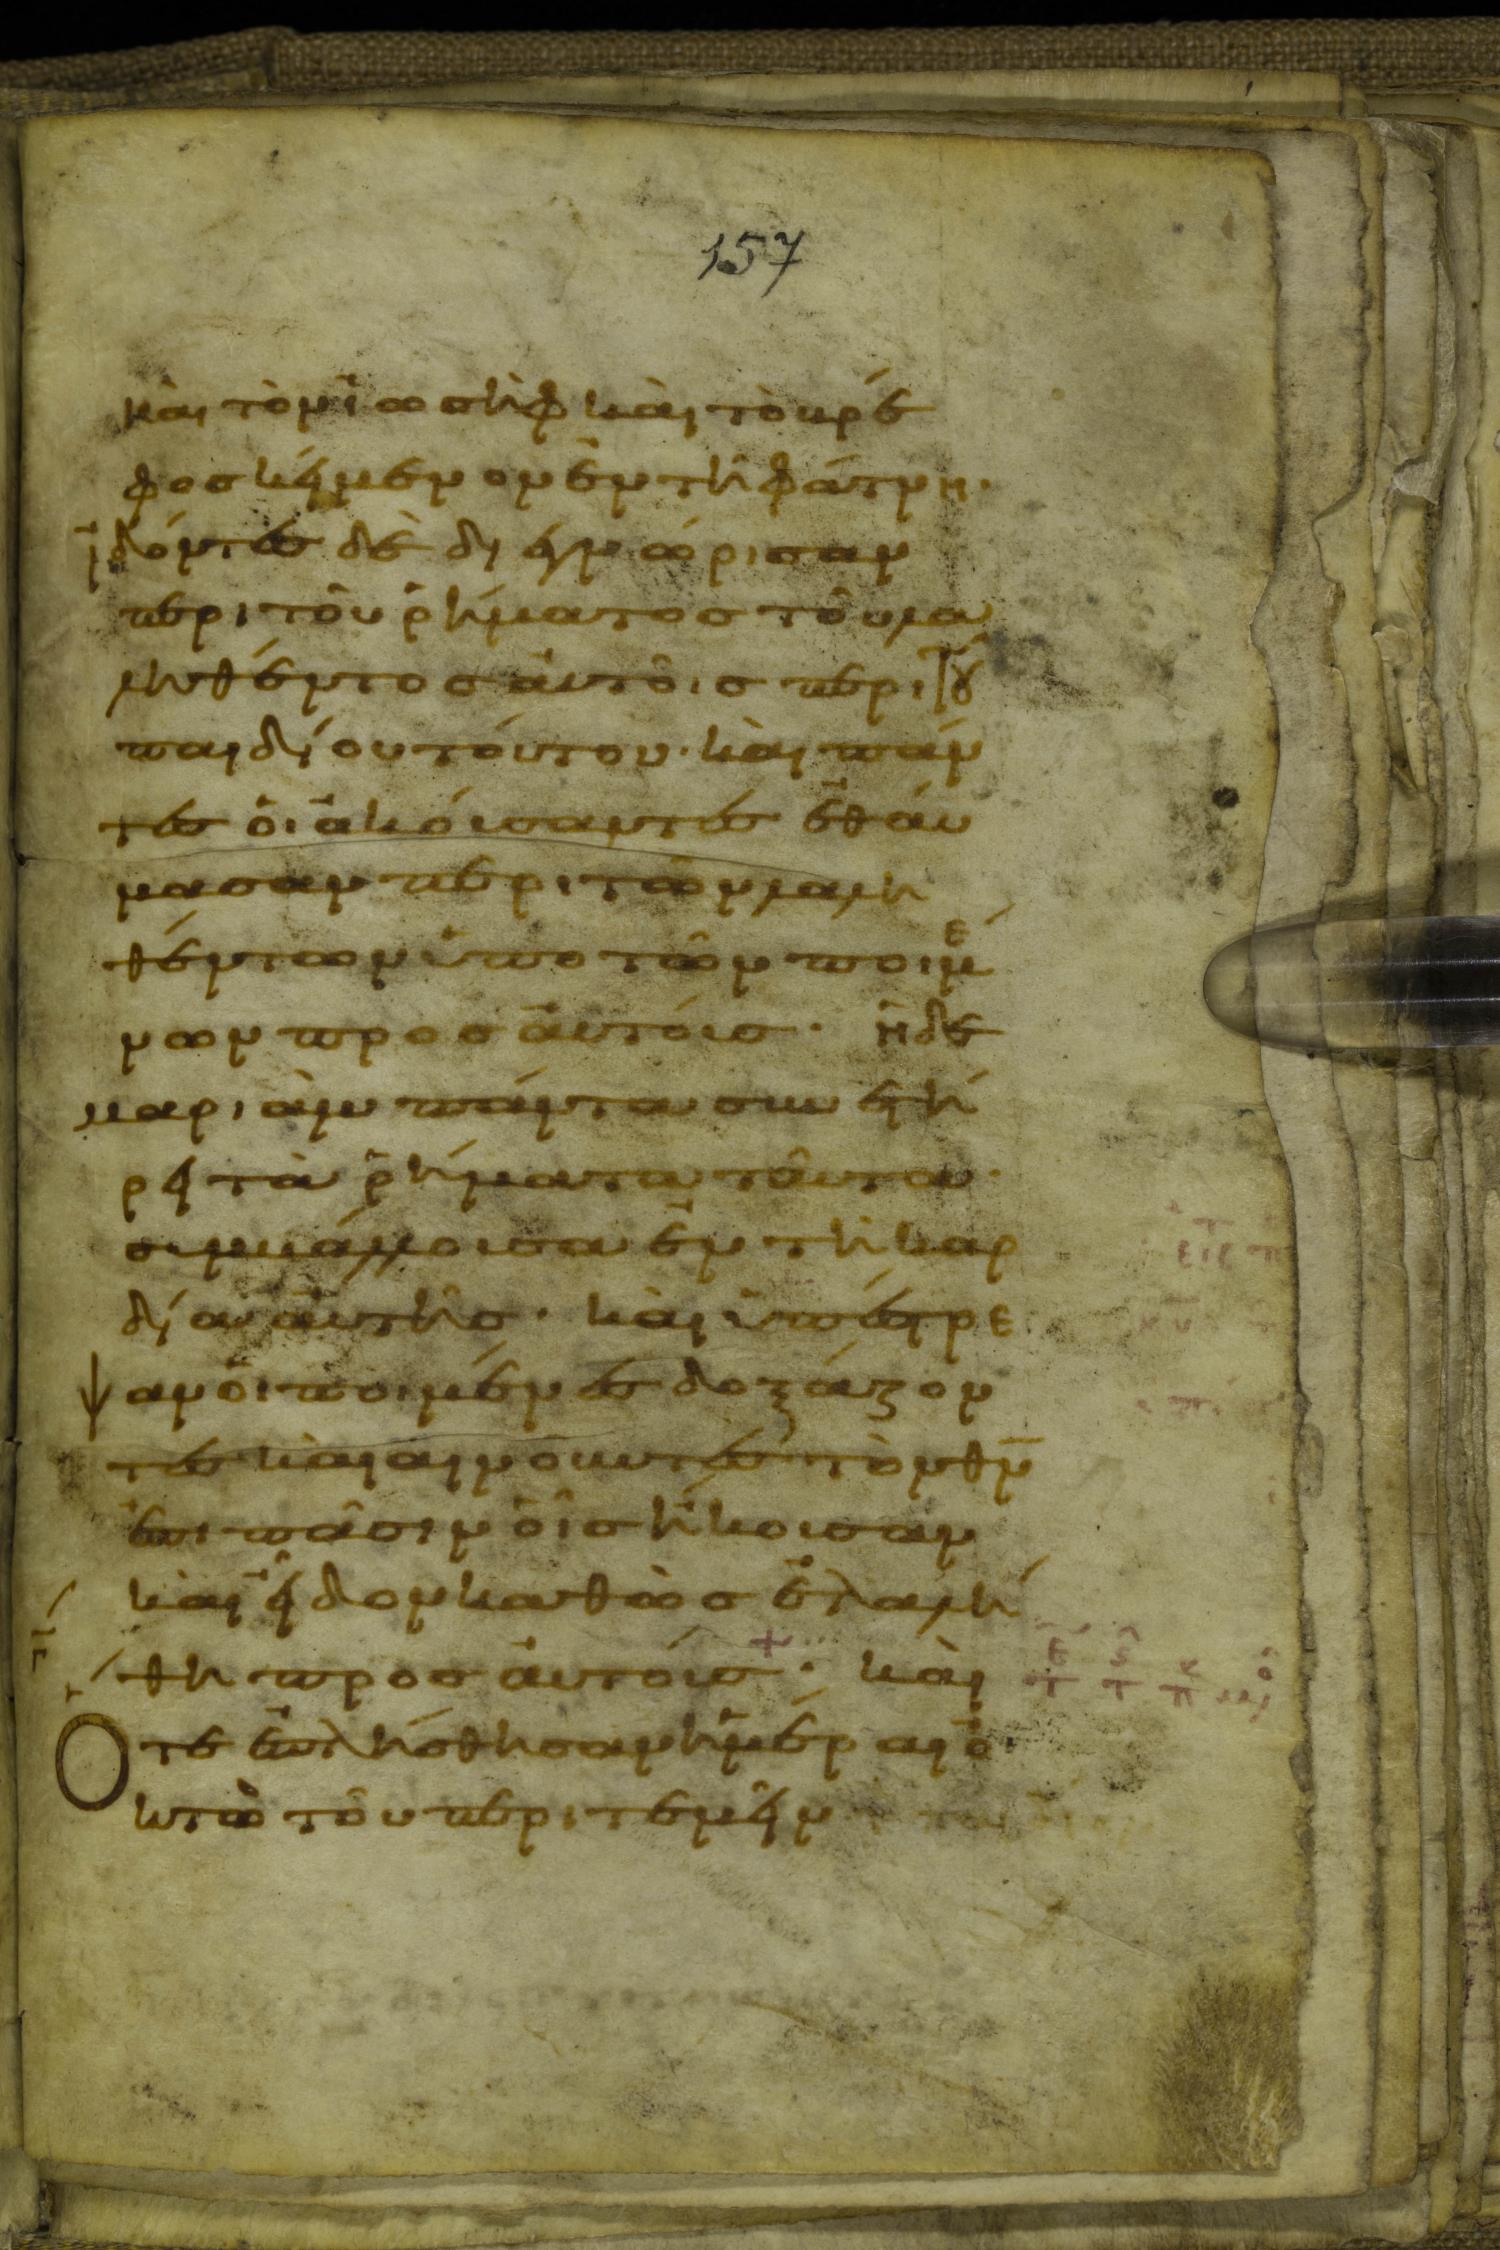 157
καὶ τὸν ἰωσὴφ καὶ τὸ βρέ
φος κείμενον ἐν τῆ φάτνη·
ἰδόντες δὲ διεγνώρισαν
περι τοῦ ῥήματος τοῦ λα
ληθέντος αὐτοῖς περι τού
παιδίου τούτου· καὶ πάν
τες οἱ ἀκούσαντες ἐθαύ
μασαν περι τῶν λαλη
θέντων ὑπο τῶν ποιμέ
νων προς αὐτούς· ἡ δε
μαριὰμ πάντα συνετή
ρει τὰ ῥήματα ταῦτα·
συμβάλλουσα ἐν τῆ καρ
δία αὐτῆς· καὶ ὑπέστρε
ψαν οἱ ποιμένες δοξάζον
τες καὶ αινοῦντες τὸν θν̅
ἐπι πᾶσιν οἷς ἤκουσαν
καὶ εἶδον καθὼς ἐλαλή
θη προς αὐτούς + · καὶ
Ὅτε ἐπλήσθησαν ἡμέραι ὀ
κτὼ τοῦ περιτεμεῖν